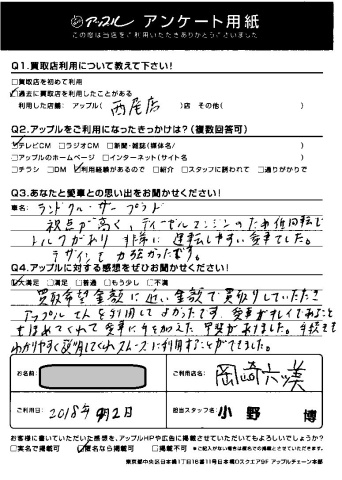 アップル アンケート用紙
この度は当店をご利用いただきありがとうございました
Q1.買取店利用について教えて下さい!
□買取店を初めて利用
☑過去に買取店を利用したことがある
利用した店舗: アップル( 西尾店 )店 その他( )
Q2.アップルをご利用になったきっかけは?(複数回答可)
☑テレビCM □ラジオCM □新聞・雑誌(媒体名/ )
□アップルのホームページ □インターネット(サイト名 )
□チラシ □DM ☑利用経験があるので □紹介 □スタッフに誘われて □通りがかりで
Q3.あなたと愛車との思い出をお聞かせください!
車名: ランドクルーザー プラド
視点が高く、ディーゼルエンジンのため低回転で
トルクがあり 非常に 運転しやすい 愛車でした。
デザインも 力強かったです。
Q4.アップルに対する感想をぜひお聞かせください!
☑大満足 □満足 □普通 □もう少し □不満
買取希望金額に近い金額で買取りしていただき
アップルさんを利用してよかったです。愛車がキレイであること
もほめてくれて愛車に手を加えた甲斐がありました。手続きも
わかりやすく説明してくれスムーズに利用することができました。
お名前:
ご利用店名: 岡崎六ッ美
ご利用日: 2018年 9月2日
担当スタッフ名: 小野 博
お客様に書いていただいた感想を、アップルHPや広告に掲載させていただいてもよろしいでしょうか?
□実名で掲載可 ☑匿名なら掲載可 □掲載不可 ※ご記入がない場合は匿名での掲載とさせていただきます。
東京都中央区日本橋1丁目16番11号日本橋Dスクエア9F アップルチェーン本部